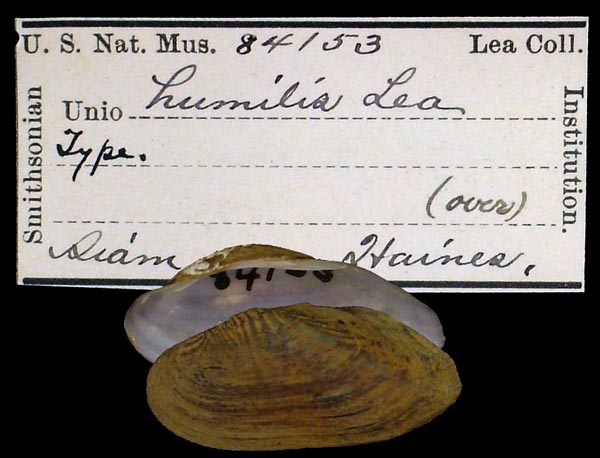 U. S. Nat. Mus. 84153 Lea Coll.
Smithsonian
Unio humilis Lea
Type.
(over)
Siám Haines.
Institution.
84153